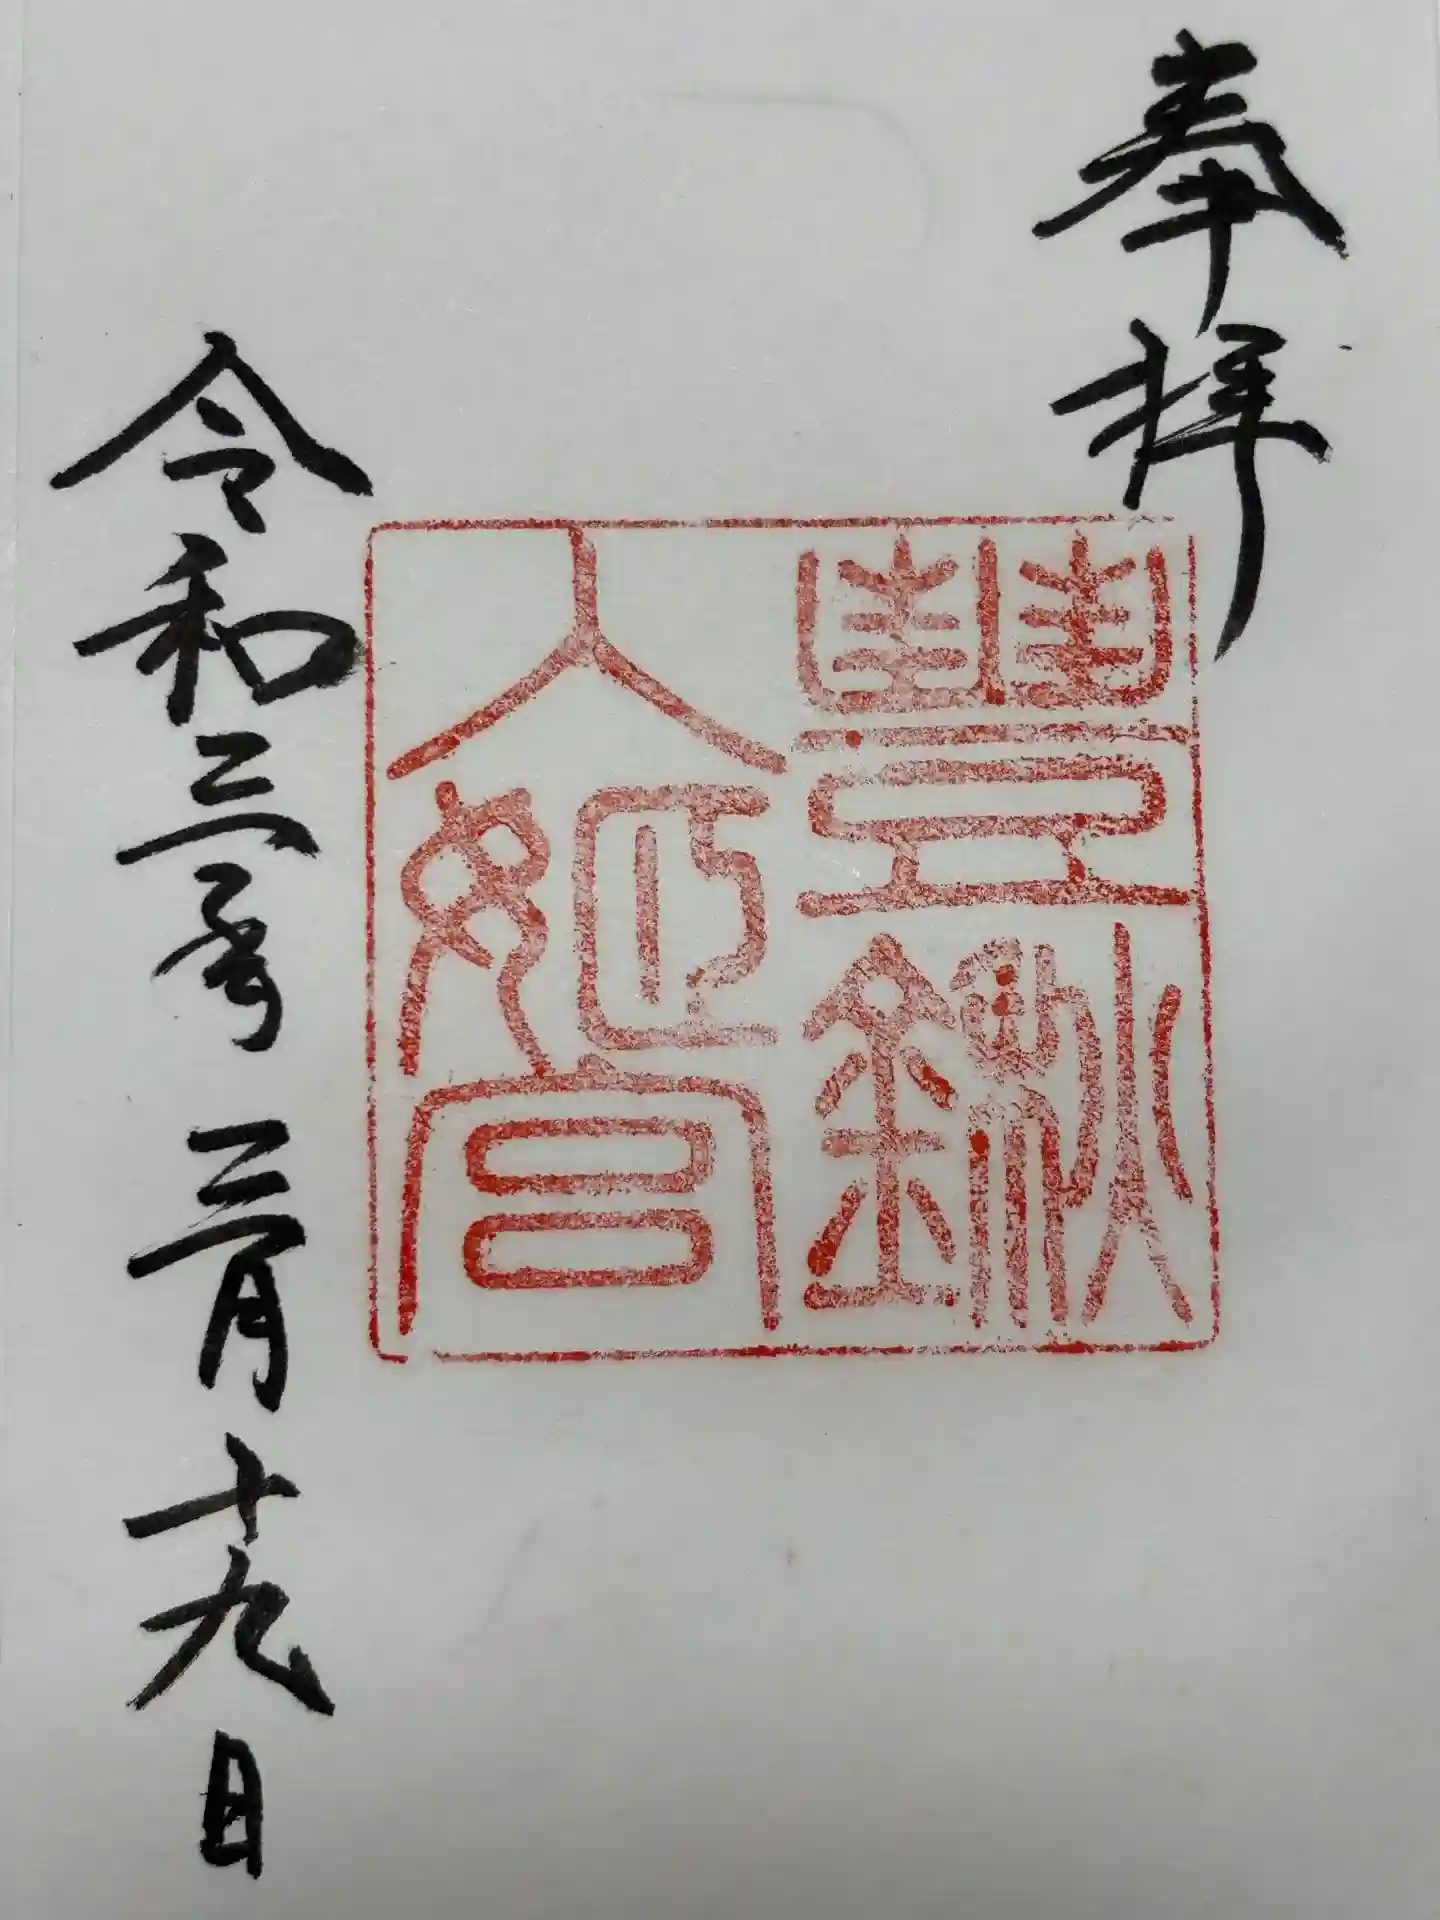 奉拝
豐鍬
入姫宮
令和三年三月十九日